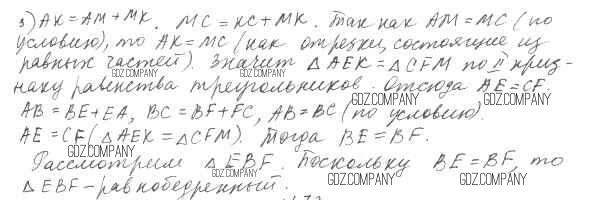 3) AK = AM + MK. MC = KC + MK. Так как AM = MC (по
условию), то AK = MC (как отрезки, состоящие из
равных частей). Значит △ AEK = △ CFM по II приз-
GDZ.COMPANY GDZ.COMPANY
наку равенства треугольников. Отсюда AE = CF.
GDZ.COMPANY GDZ.COMPANY
AB = BE + EA, BC = BF + FC, AB = BC (по условию).
AE = CF (△ AEK = △ CFM). Тогда BE = BF.
GDZ.COMPANY
Рассмотрим △ EBF. Поскольку BE = BF, то
GDZ.COMPANY GDZ.COMPANY GDZ.COMPANY
△ EBF – равнобедренный.